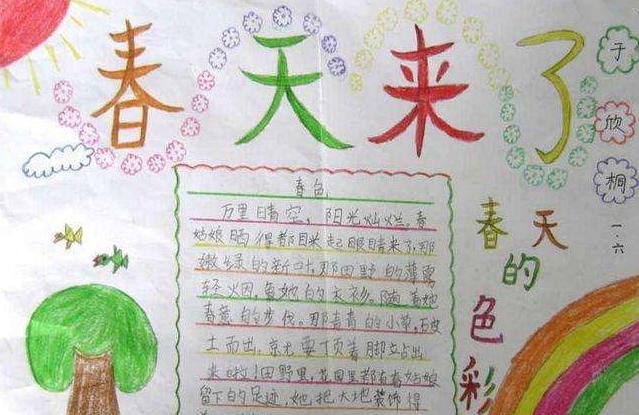 春天来了
于欣桐
一.六
春色
万里晴空，阳光灿烂。春
姑娘晒得都眯起眼睛来了，那
嫩绿的新叶，那田野的薄雾
轻烟，是她的衣衫。随着她
春蕊的步伐。那青青的小草，破
土而出，
来啦！田野里，花园里都有春姑娘
留下的足迹，她把大地装饰得
春天的色彩